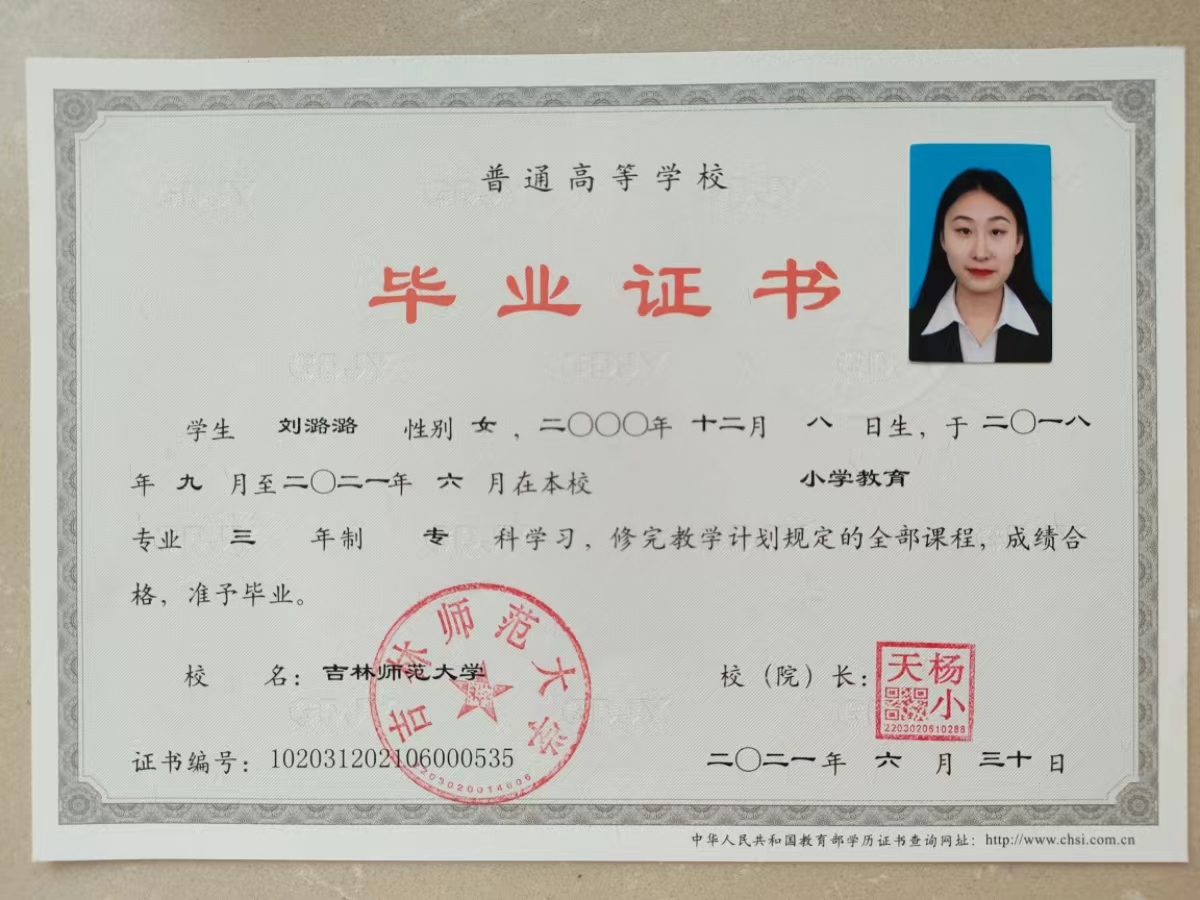 普通高等学校
毕业证书
学生 刘潞潞 性别 女，二〇〇〇年 十二月 八 日生，于二〇一八
年 九 月至二〇二一年 六 月在本校 小学教育
专业 三 年制 专 科学习，修完教学计划规定的全部课程，成绩合
格，准予毕业。
吉林师范大学
2203020014606
校 名：吉林师范大学 校（院）长：
杨小天
2203020610286
证书编号：102031202106000535 二〇二一年 六 月 三十 日
中华人民共和国教育部学历证书查询网址：http://www.chsi.com.cn